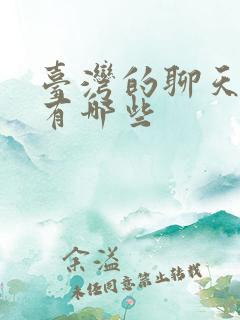 臺灣的聊天
有哪些
余溢
未经同意禁止转载